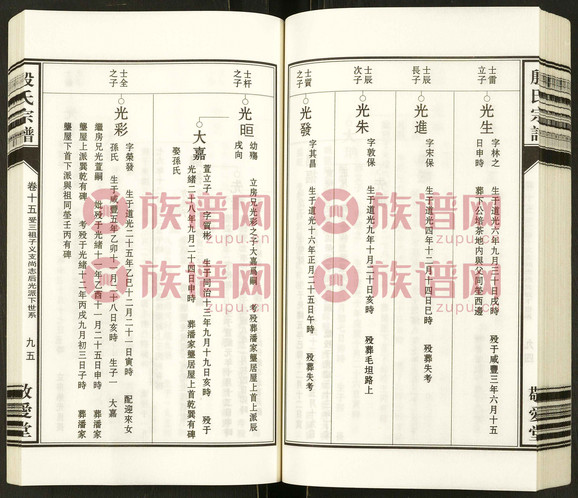 殷氏宗譜
敬愛堂
士雷
立子
光生
字林之
生于道光六年九月三十日戌時
殁于咸豐三年六月十五
日申時
葬下公培茶地內與父同塋西邊
士辰
長子
光進
字宋保
生于道光四年十二月十四日巳時
殁葬失考
士辰
次子
光朱
字敦保
生于道光九年十月二十日亥時
殁葬毛坦路上
士貿
之子
光發
字其昌
生于道光十六年正月二十五日午時
殁葬失考
士杆
之子
光晅
幼殤
立房兄光彩之子大嘉爲嗣
考殁葬潘家壟居屋上首上派辰
戌向
大嘉
萱立子
字質彬
生于同治十三年九月十九日亥時
殁于
光緒二十八年九月二十四日申時
葬潘家壟居屋上首乾巽有碑
娶孫氏
士全
之子
光彩
字榮發
生于道光二十五年乙巳十二月二十一日寅時
配迎來女
孫氏
生于咸豐五年乙卯十一月二十八日亥時
生子一
大嘉
繼房兄光萱嗣
妣殁于光緒十一年乙酉十一月二十五日申時
葬潘家
壟屋上派巽乾有碑
考殁于光緒十二年丙戌九月初三日子時
葬潘家
壟屋下首下派與祖同塋壬丙有碑
殷氏宗譜
卷十五
受三祖子义支尚志后光派下世系
九五
敬愛堂
族谱网
zupu.cn
族谱网
zupu.cn
族谱网
zupu.cn
族谱网
zupu.cn